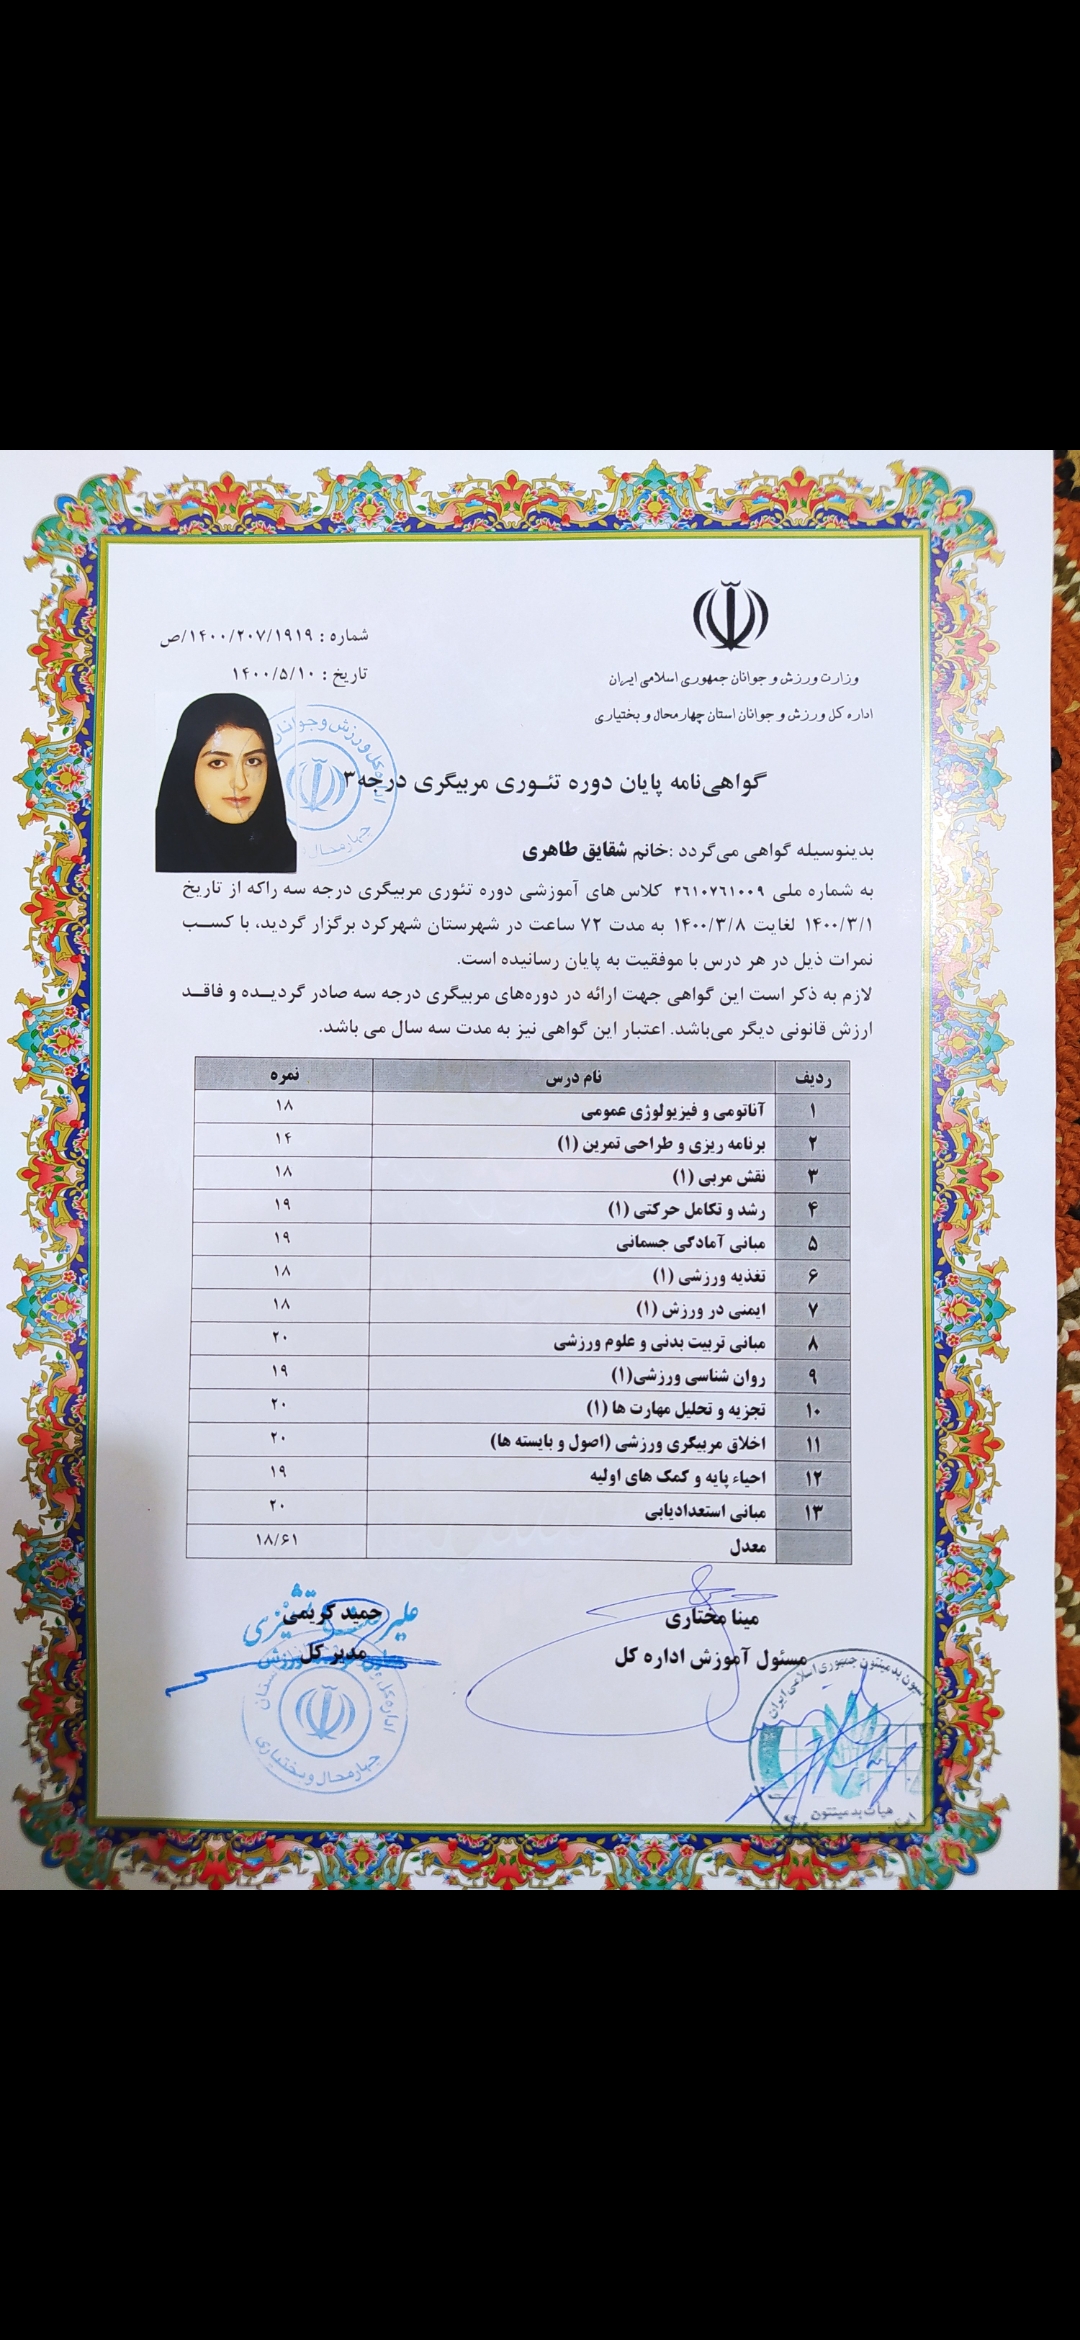 وزارت ورزش و جوانان جمهوری اسلامی ایران
اداره کل ورزش و جوانان استان چهارمحال و بختیاری
شماره : ۱۴۰۰/۲۰۷/۱۹۱۹/ص
تاریخ : ۱۴۰۰/۵/۱۰
گواهی‌نامه پایان دوره تئوری مربیگری درجه۳
بدینوسیله گواهی می‌گردد :خانم شقایق طاهری
به شماره ملی ۴۶۱۰۷۶۱۰۰۹ کلاس های آموزشی دوره تئوری مربیگری درجه سه راکه از تاریخ
۱۴۰۰/۳/۱ لغایت ۱۴۰۰/۳/۸ به مدت ۷۲ ساعت در شهرستان شهرکرد برگزار گردید، با کسب
نمرات ذیل در هر درس با موفقیت به پایان رسانیده است.
لازم به ذکر است این گواهی جهت ارائه در دوره‌های مربیگری درجه سه صادر گردیده و فاقد
ارزش قانونی دیگر می‌باشد. اعتبار این گواهی نیز به مدت سه سال می باشد.
ردیف نام درس نمره
۱ آناتومی و فیزیولوژی عمومی ۱۸
۲ برنامه ریزی و طراحی تمرین (۱) ۱۴
۳ نقش مربی (۱) ۱۸
۴ رشد و تکامل حرکتی (۱) ۱۹
۵ مبانی آمادگی جسمانی ۱۹
۶ تغذیه ورزشی (۱) ۱۸
۷ ایمنی در ورزش (۱) ۱۸
۸ مبانی تربیت بدنی و علوم ورزشی ۲۰
۹ روان شناسی ورزشی(۱) ۱۹
۱۰ تجزیه و تحلیل مهارت ها (۱) ۲۰
۱۱ اخلاق مربیگری ورزشی (اصول و بایسته ها) ۲۰
۱۲ احیاء پایه و کمک های اولیه ۱۹
۱۳ مبانی استعدادیابی ۲۰
معدل ۱۸/۶۱
مینا مختاری
مسئول آموزش اداره کل
حمید کریمی
مدیر کل
اداره کل ورزش و جوانان
چهارمحال و بختیاری
بدمینتون جمهوری اسلامی ایران
هیات بدمینتون